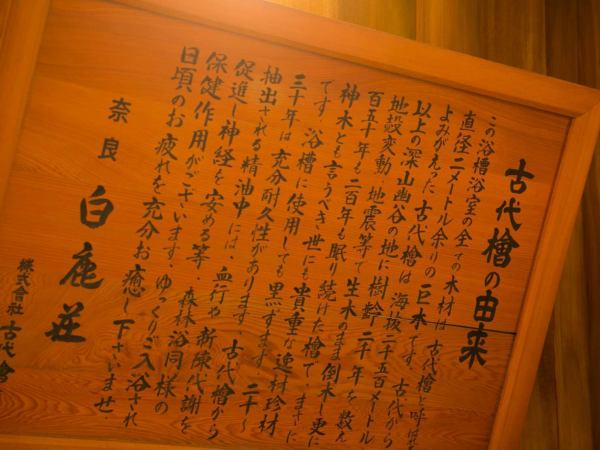 古代檜の由来
この浴槽浴室の全ての木材は古代檜と呼ばれ
直径二メートル余りの巨木です。古代から
よみがえった古代檜は海抜二千五百メートル
以上の深山幽谷の地に樹齢二千年を数え
地殻変動、地震等で生木のまま倒木し更に
百五十年も二百年も眠り続けた檜で、まさに
神木とも言うべき世にも貴重な逸材珍材
です。浴槽に使用しても黒ずまず、二十〜
三十年は充分耐久性があります。古代檜から
抽出される精油中には、血行や新陳代謝を
促進し神経を安める等、森林浴同様の
保健作用がございます。ゆっくりご入浴され
日頃のお疲れを充分お癒し下さいませ。
奈良 白鹿荘
株式会社 古代檜